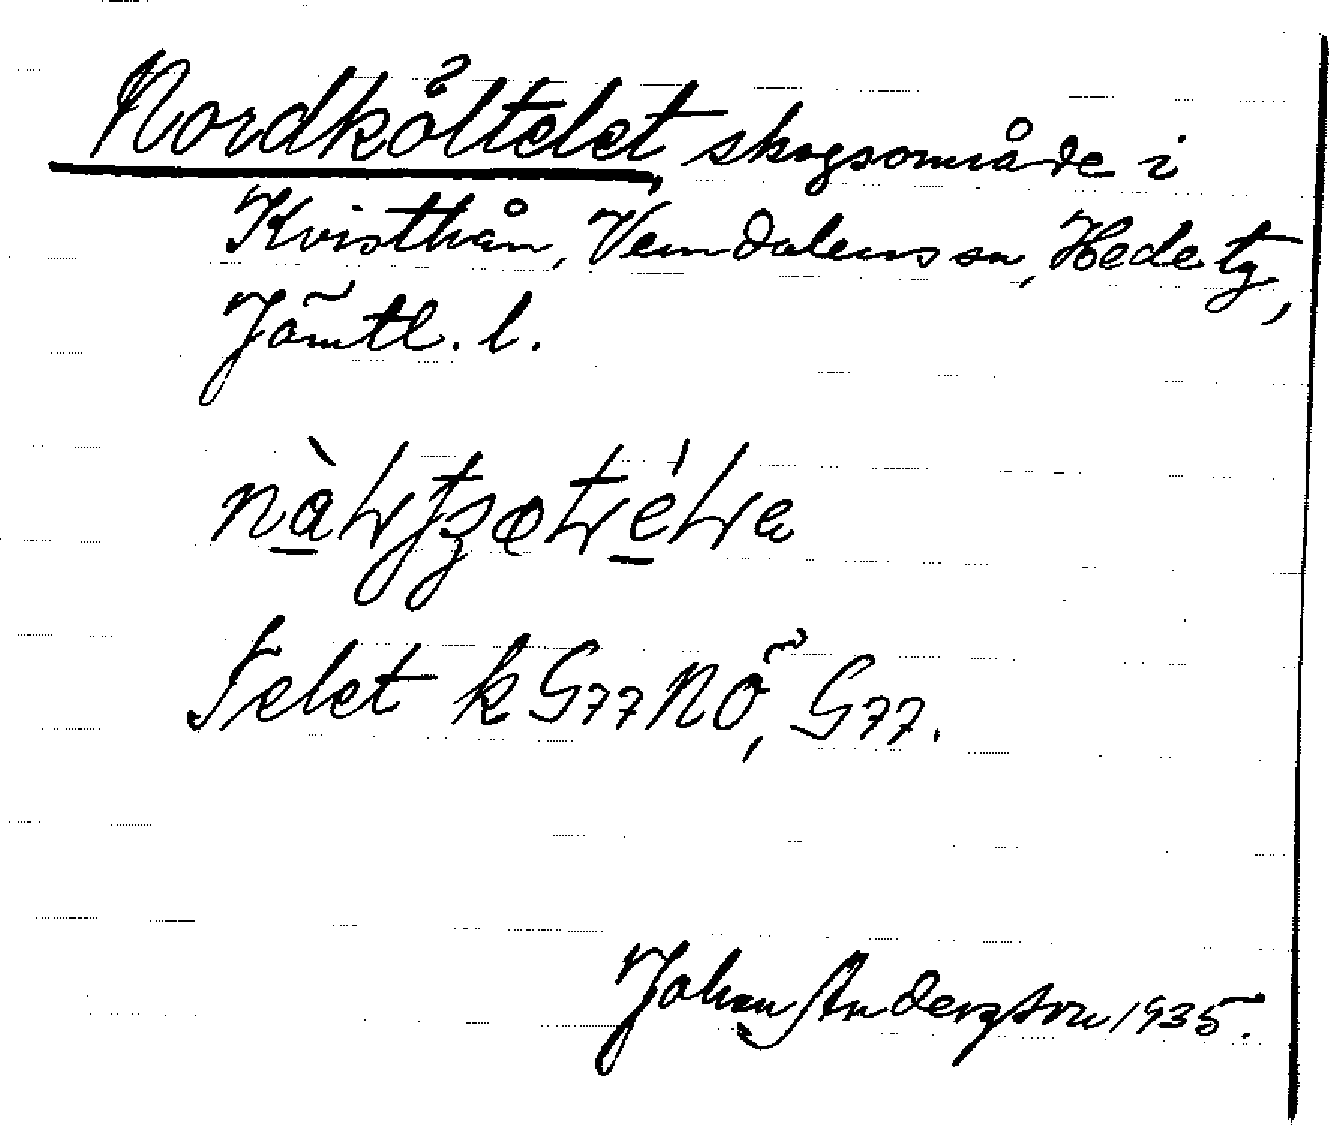 Nordkåltelet, skogsområde i
Kvisthån, Vemdalens sn, Hede tg,
Jämtl. l.
Telet k G77 NÖ, G77.
Johan Anderzson 1935.